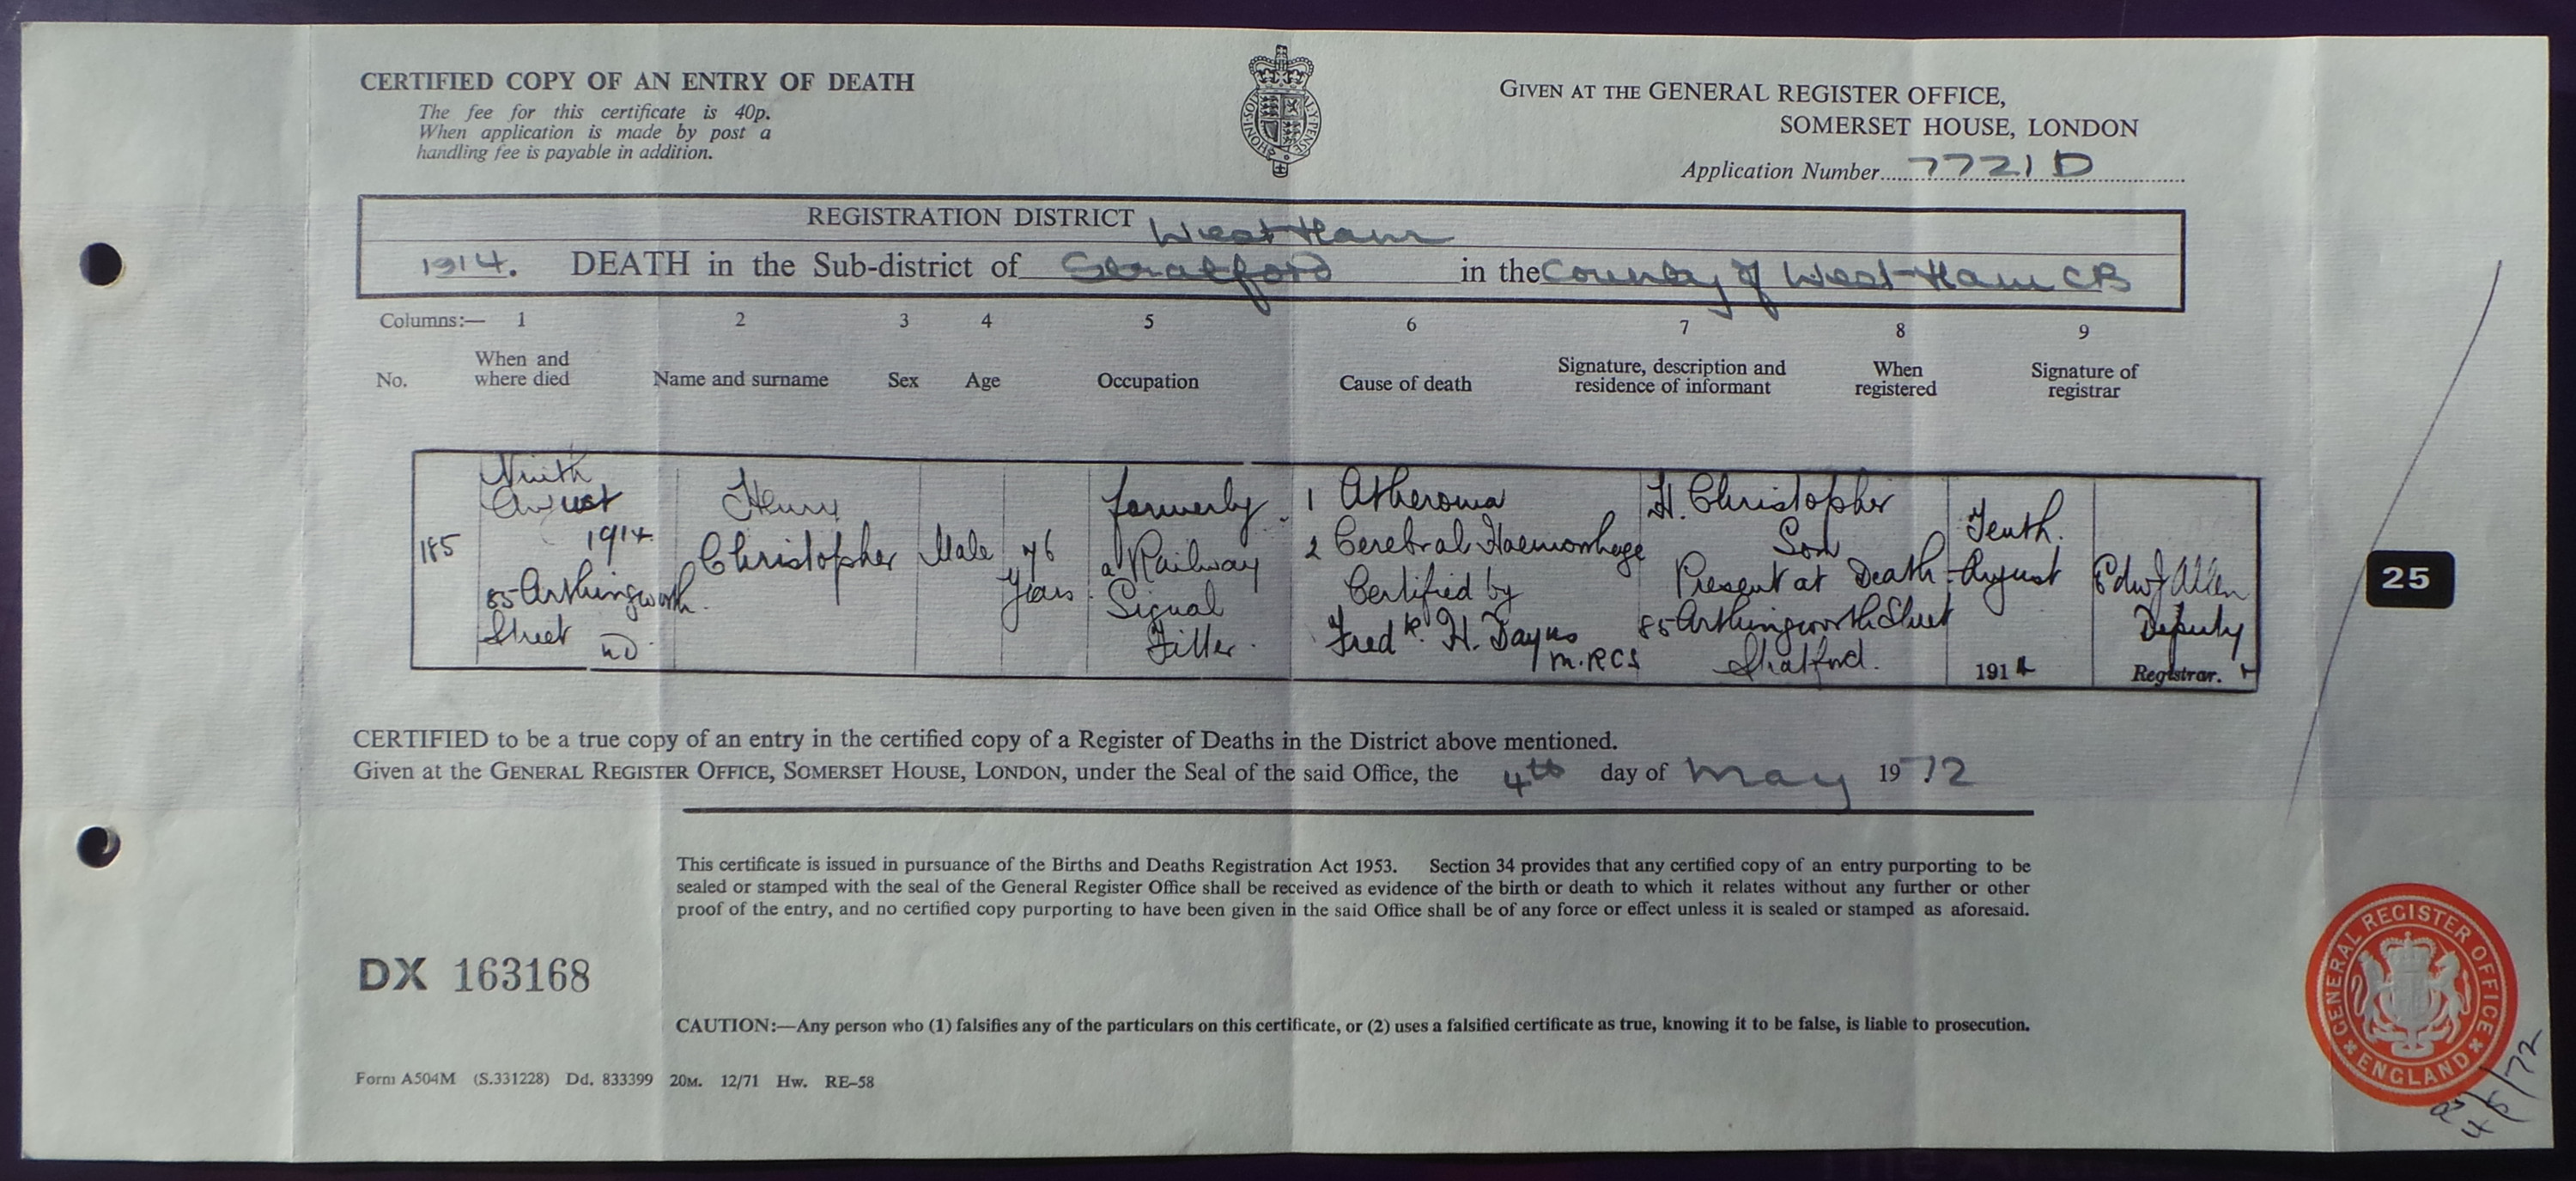 CERTIFIED COPY OF AN ENTRY OF DEATH
The fee for this certificate is 40p.
When application is made by post a
handling fee is payable in addition.
HONI·SOIT QUI MAL·Y·PENSE
GIVEN AT THE GENERAL REGISTER OFFICE,
SOMERSET HOUSE, LONDON
Application Number 7721 D
REGISTRATION DISTRICT West Ham
1914. DEATH in the Sub-district of Stratford in the County of West Ham CB
Columns:— 1 2 3 4 5 6 7 8 9
No.
When and
where died
Name and surname
Sex
Age
Occupation
Cause of death
Signature, description and
residence of informant
When
registered
Signature of
registrar
185
Ninth
August
1914
85 Arthingworth
Street
UD
Henry
Christopher
Male
76
Years
formerly
a Railway
Signal
Fitter.
1 Atheroma
2 Cerebral Haemorrhage
Certified by
Fredk. H. Dayus
M.RCS
H. Christopher
Son
Present at Death
85 Arthingworth Street
Stratford.
Tenth.
August
1914
Edw J Allen
Deputy
Registrar.
25
CERTIFIED to be a true copy of an entry in the certified copy of a Register of Deaths in the District above mentioned.
Given at the GENERAL REGISTER OFFICE, SOMERSET HOUSE, LONDON, under the Seal of the said Office, the 4th day of May 1972
This certificate is issued in pursuance of the Births and Deaths Registration Act 1953. Section 34 provides that any certified copy of an entry purporting to be
sealed or stamped with the seal of the General Register Office shall be received as evidence of the birth or death to which it relates without any further or other
proof of the entry, and no certified copy purporting to have been given in the said Office shall be of any force or effect unless it is sealed or stamped as aforesaid.
DX 163168
CAUTION:—Any person who (1) falsifies any of the particulars on this certificate, or (2) uses a falsified certificate as true, knowing it to be false, is liable to prosecution.
Form A504M (S.331228) Dd. 833399 20M. 12/71 Hw. RE-58
GENERAL REGISTER OFFICE
ENGLAND
4/5/72